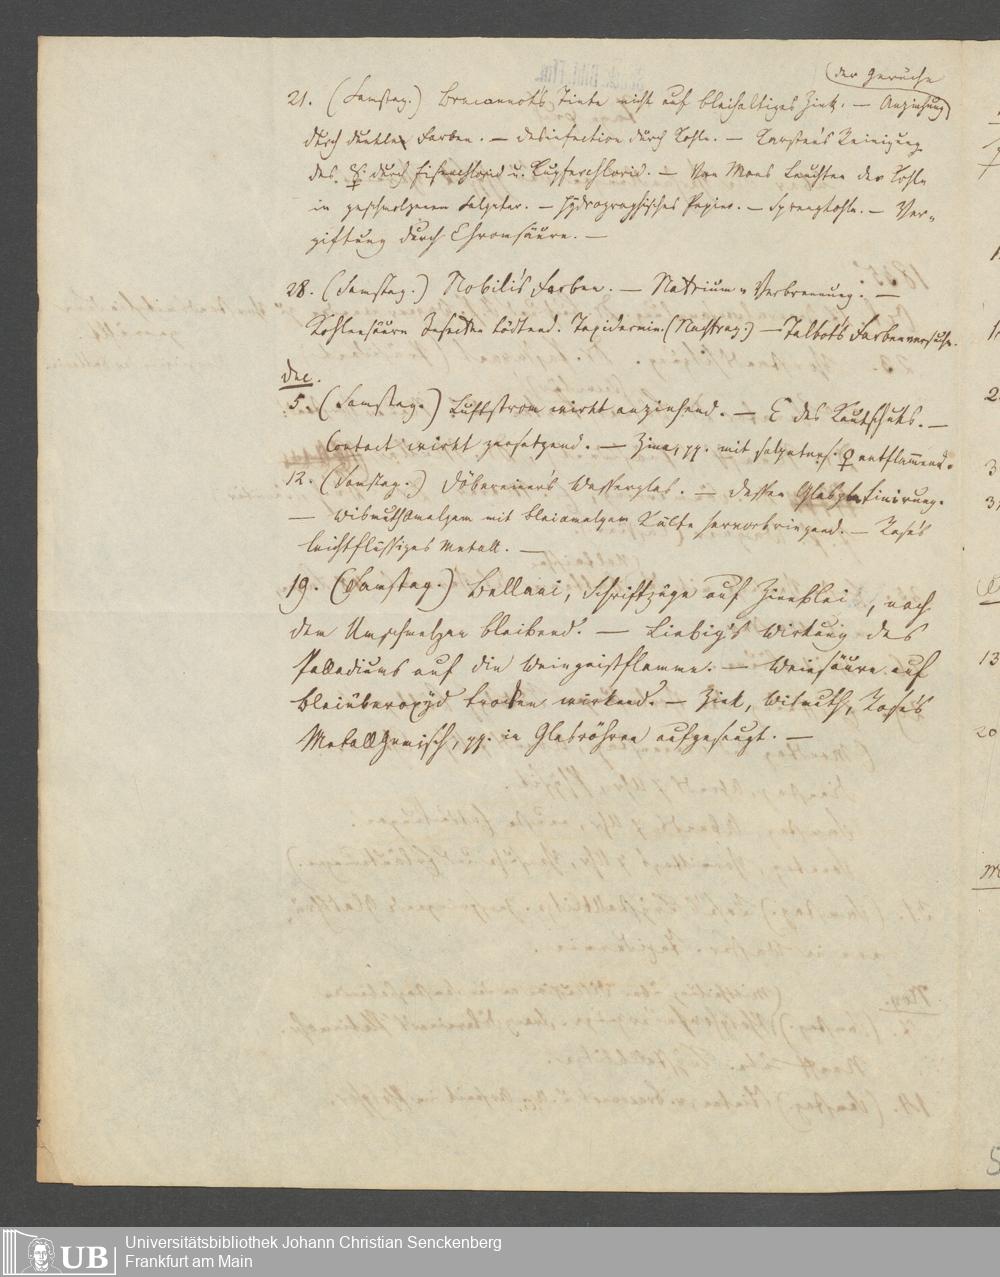 (der Gerüche
21. (Samstag.) Braconnot's Tinte nicht auf bleihaltiges Zink. — Anziehung)
durch dunkle Farben. — Desinfection durch Kohle. — Karsten's Reinigung
des durch Eisenchlorid u. Kupferchlorid. — Van Mons Leuchten der Kohle
in geschmolzenem Salpeter. — Hydrographisches Papier. — Sprengkohle. — Ver-
giftung durch Chromsäure. —
28. (Samstag.) Nobili's Farben. — Natrium Verbrennung. —
Kohlensäure Insecten tödtend. Tepidarium. (Nachtrag.) — Talbot's Farbenversuche.
Dec.
5. (Samstag.) Luftstrom wirkt anziehend. — E des Kautschuks. —
Contact wirkt zersetzend. — Zinn, pp. mit salpeters. ☿ entflammend.
12. (Samstag.) Döbereiner's Wasserglas. — Dessen Glasplatinirung.
— Wismuthamalgam mit Bleiamalgam Kälte hervorbringend. — Rose's
leichtflüssiges Metall. —
19. (Samstag.) Bellani, Schriftzüge auf Zinnblei, nach
dem Umschmelzen bleibend. — Liebig's Wirkung des
Palladiums auf die Weingeistflamme. — Weinsäure auf
Bleiüberoxyd trocken wirkend. — Zink, Wismuth, Rose's
Metallgemisch, pp. in Glasröhren aufgesaugt. —
13
20
UB
Universitätsbibliothek Johann Christian Senckenberg
Frankfurt am Main